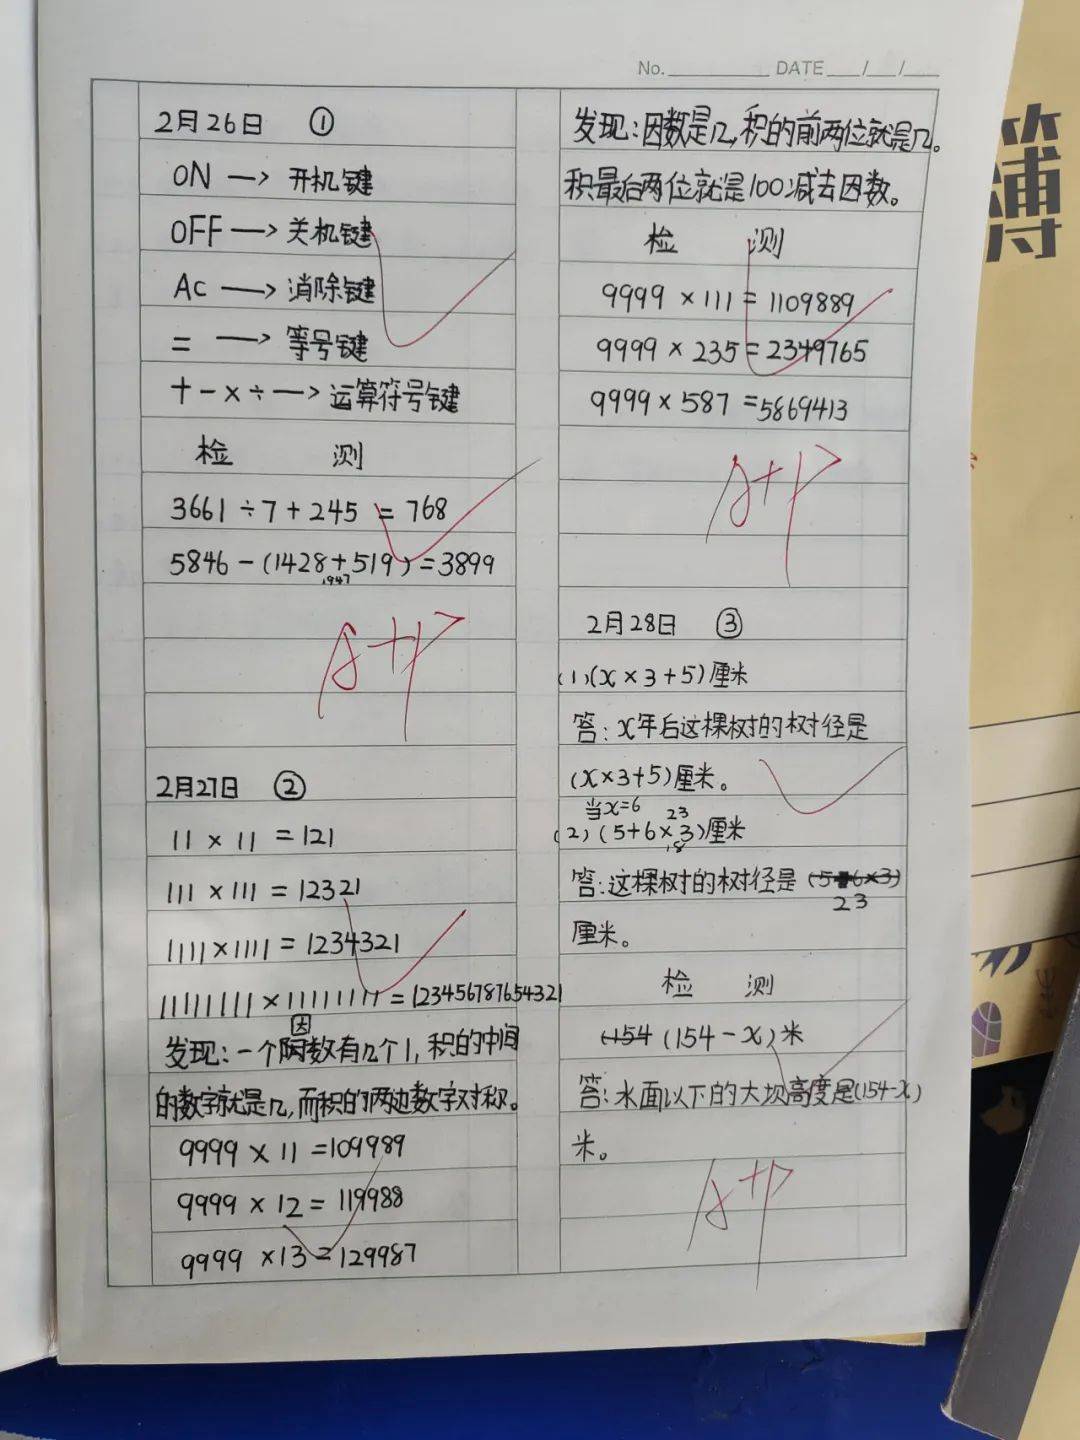 No. DATE / /
2月26日 ①
ON → 开机键
OFF → 关机键
AC → 消除键
= → 等号键
+ - × ÷ → 运算符号键
检 测
3661 ÷ 7 + 245 = 768
5846 - (1428 + 519) = 3899
1947
A+P
2月27日 ②
11 × 11 = 121
111 × 111 = 12321
1111 × 1111 = 1234321
11111111 × 11111111 = 123456787654321
因
发现:一个数有几个1,积的中间
的数字就是几,而积的两边数字对称。
9999 × 11 = 109989
9999 × 12 = 119988
9999 × 13 = 129987
发现:因数是几,积的前两位就是几。
积最后两位就是100减去因数。
检 测
9999 × 111 = 1109889
9999 × 235 = 2349765
9999 × 587 = 5869413
A+P
2月28日 ③
(1)(x × 3 + 5)厘米
答:x年后这棵树的树径是
(x×3+5)厘米。
当x=6 23
(2)(5+6×3)厘米
18
答:这棵树的树径是 (5+6×3)
23
厘米。
检 测
(154 (154-x)米
答:水面以下的大坝高度是(154-x)
米。
A+P
簿